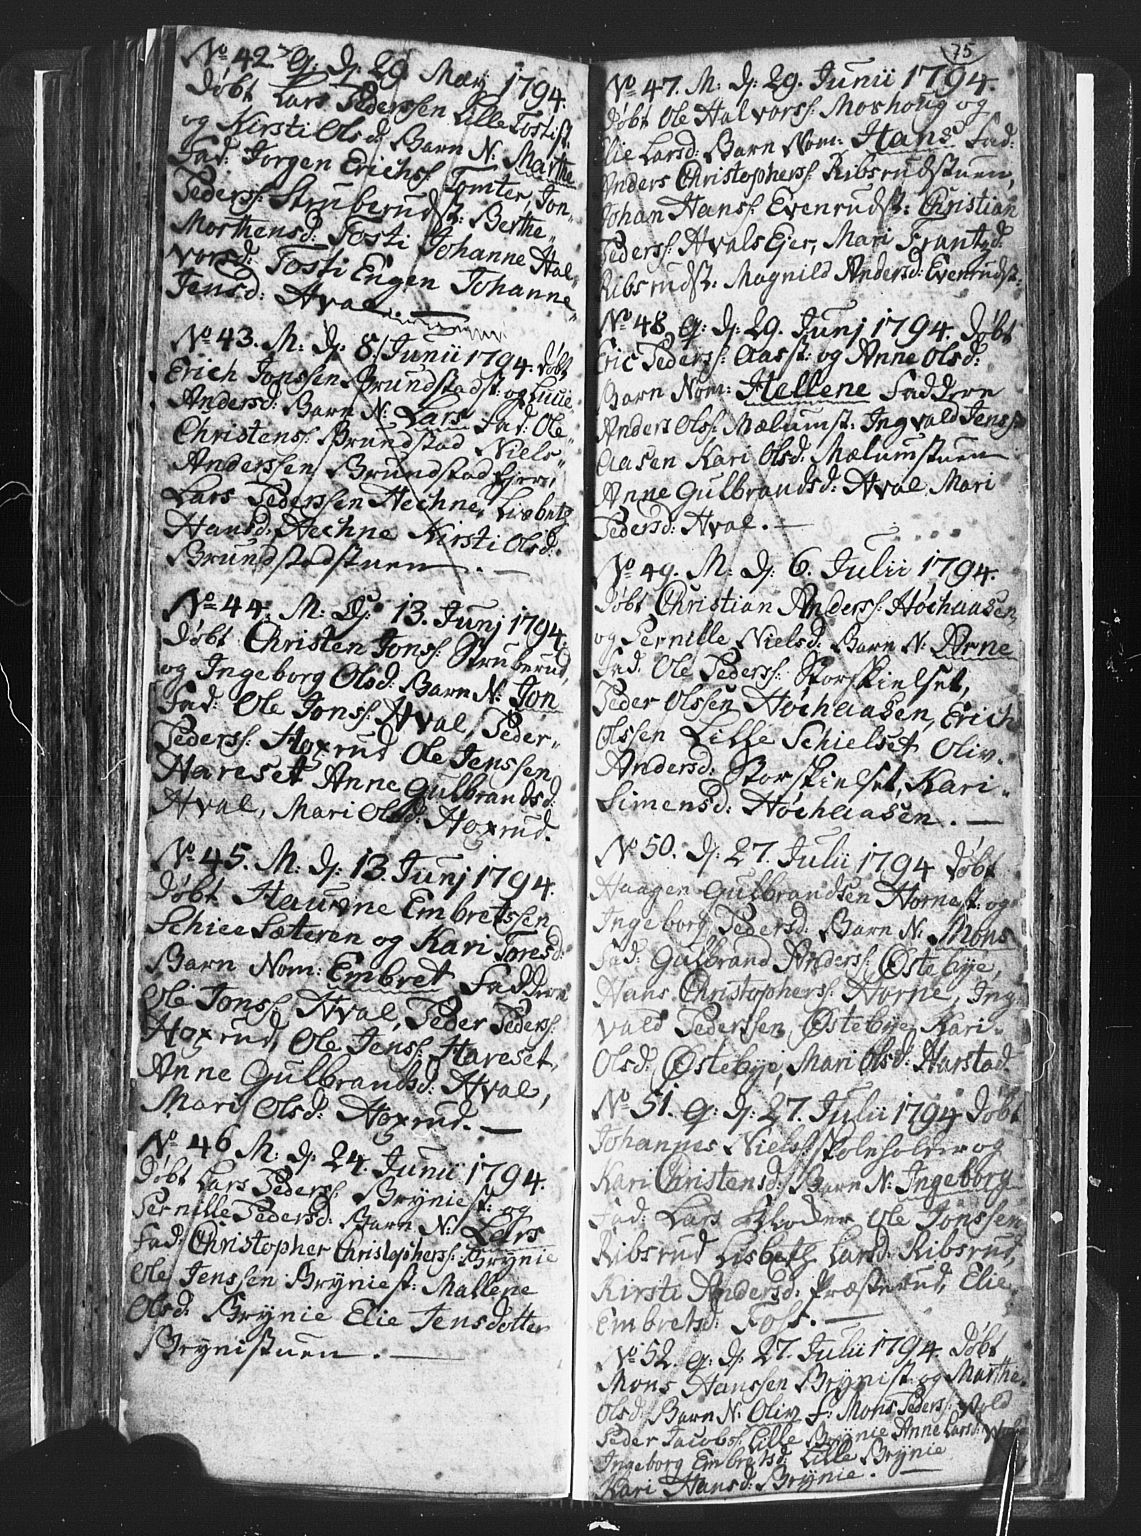 No 42 Q. D: 29 Maÿ 1794.
Døbt Lars Pederssen Lille Tostist:
og Kirsti Olsd: Barn N: Marthe
Fad: Jørgen Erichs: Tomter, Jon
Peders: Struberudst: Berthe
Morthensd: Tosti Johanne Hal-
vorsd: Tosti Engen Johanne
Jensd: Hval.
No 43. M. D: 8. Junii 1794. døbt
Erich Jonssen Brundstadst: og
Andersd: Barn N: Lars Fad: Ole
Christens: Brundstad Niels
Anderssen Brundstad
Lars Pederssen Hechne,
Hansd: Hechne Kirsti Olsd:
Brundstadstuen.
No 44. M. D: 13. Junj 1794.
Døbt Christen Jons: Struberud,
og Ingeborg Olsd: Barn N: Jon
Fad: Ole Jons: Hval, Peder
Peders: Hoxrud Ole Jenssen
Hareset Anne Gulbrandsd:
Hval, Mari Olsd: Hoxrud.
No 45. M. D: 13 Junj 1794.
Døbt Embretssen
Schiee Sæteren og Kari Toresd:
Barn Nom: Embret Faddere
Ole Jons: Hval, Peder Peders:
Hoxrud, Ole Jens: Hareset,
Anne Gulbrandsd: Hval,
Mari Olsd: Hoxrud.
No 46 M. D: 24 Junii 1794.
Døbt Lars Peders: Brÿniest: og
Pernille Pedersd: Barn N: Lars
Fad: Christopher Christophers: Brÿnie
Ole Jenssen Brÿniest: Mallene
Olsd: Brÿnie Elie Jensdotter
Brÿnistuen.
75
No 47. M. D: 29. Junii 1794.
Døbt Ole Halvors: Moshoug og
Elie Larsd: Barn Nom: Hans Fad:
Anders Christophers: Ribsrudstuen,
Johan Hans: Evenrudst: Christian
Peders: Hvals Ejer, Mari Frantzd:
Ribsrudst: Magnild Andersd: Evenrudst:
No 48. Q: D: 29. Junj 1794. Døbt
Eric Peders: Aasst: og Anne Olsd:
Barn Nom: Hellene Faddere
Anders Ols: Mælumst: Ingvald Jens:
Aasen Kari Olsd: Mælumstuen
Anne Gulbrandsd: Hval Mari
Pedersd: Hval.
No 49. M. D: 6. Julii 1794.
Døbt Christian Anders: Høehaasen,
og Pernille Nielsd: Barn N: Arne
Fad: Ole Peders: Storskielset,
Peder Olssen Høehaasen, Erich
Olssen Lille Schielset Oliv
Andersd: Storskielset, Kari
Simensd: Høehaasen.
No 50. D: 27. Julii 1794 Døbt
Haagen Gulbrandsen Hornest: og
Ingeborg Pedersd: Barn N: Mons
Fad: Gulbrand Anders: Østebÿe,
Hans Christophers: Horne, Ing-
vald Pederssen Østebÿe, Kari
Olsd: Østebÿe, Mari Olsd: Harstad.
No 51. Q: D: 27. Julii 1794 Døbt
Johannes Niels: Skoleholder og
Kari Christensd: Barn N: Ingeborg
Fad: Lars Ole Jonssen
Ribsrud Lisbeth Larsd: Ribsrud,
Kirsti Andersd: Præsterud, Elie
Embretsd: Foss.
No 52. Q: D: 27. Julii 1794 Døbt
Mons Hanssen Brÿnist: og Marthe
Olsd: Barn N: Oliv F: Mons Peders: Wold
Peder Jacobs: Lille Brÿnie Anne Larsd: Wold
Ingeborg Embretsd: Lille Brÿnie
Kari Hansd: Brÿnie.